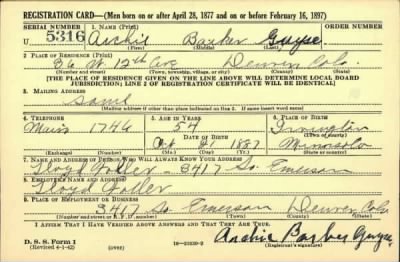 REGISTRATION CARD—(Men born on or after April 28, 1877 and on or before February 16, 1897)
SERIAL NUMBER 1. NAME (Print) ORDER NUMBER
U 5316 Archie Barber Guyse
(First) (Middle) (Last)
2. PLACE OF RESIDENCE (Print)
36 W. 12th Ave Denver Colo.
(Number and street) (Town, township, village, or city) (County) (State)
[THE PLACE OF RESIDENCE GIVEN ON THE LINE ABOVE WILL DETERMINE LOCAL BOARD
JURISDICTION; LINE 2 OF REGISTRATION CERTIFICATE WILL BE IDENTICAL]
3. MAILING ADDRESS
Same
[Mailing address if other than place indicated on line 2. If same insert word same]
4. TELEPHONE 5. AGE IN YEARS 6. PLACE OF BIRTH
Main 1746 54 Irvington
DATE OF BIRTH (Town or county)
1887 Minnesota
(Exchange) (Number) (Mo.) (Day) (Yr.) (State or country)
7. NAME AND ADDRESS OF PERSON WHO WILL ALWAYS KNOW YOUR ADDRESS
Lloyd 3417 So. Emerson
8. EMPLOYER'S NAME AND ADDRESS
Lloyd
9. PLACE OF EMPLOYMENT OR BUSINESS
3417 So. Emerson Denver Colo
(Number and street or R. F. D. number) (Town) (County) (State)
I AFFIRM THAT I HAVE VERIFIED ABOVE ANSWERS AND THAT THEY ARE TRUE.
D. S. S. Form 1 Archie Barber Guyse
(Revised 4-1-42) (over) 16—21630-2 (Registrant's signature)